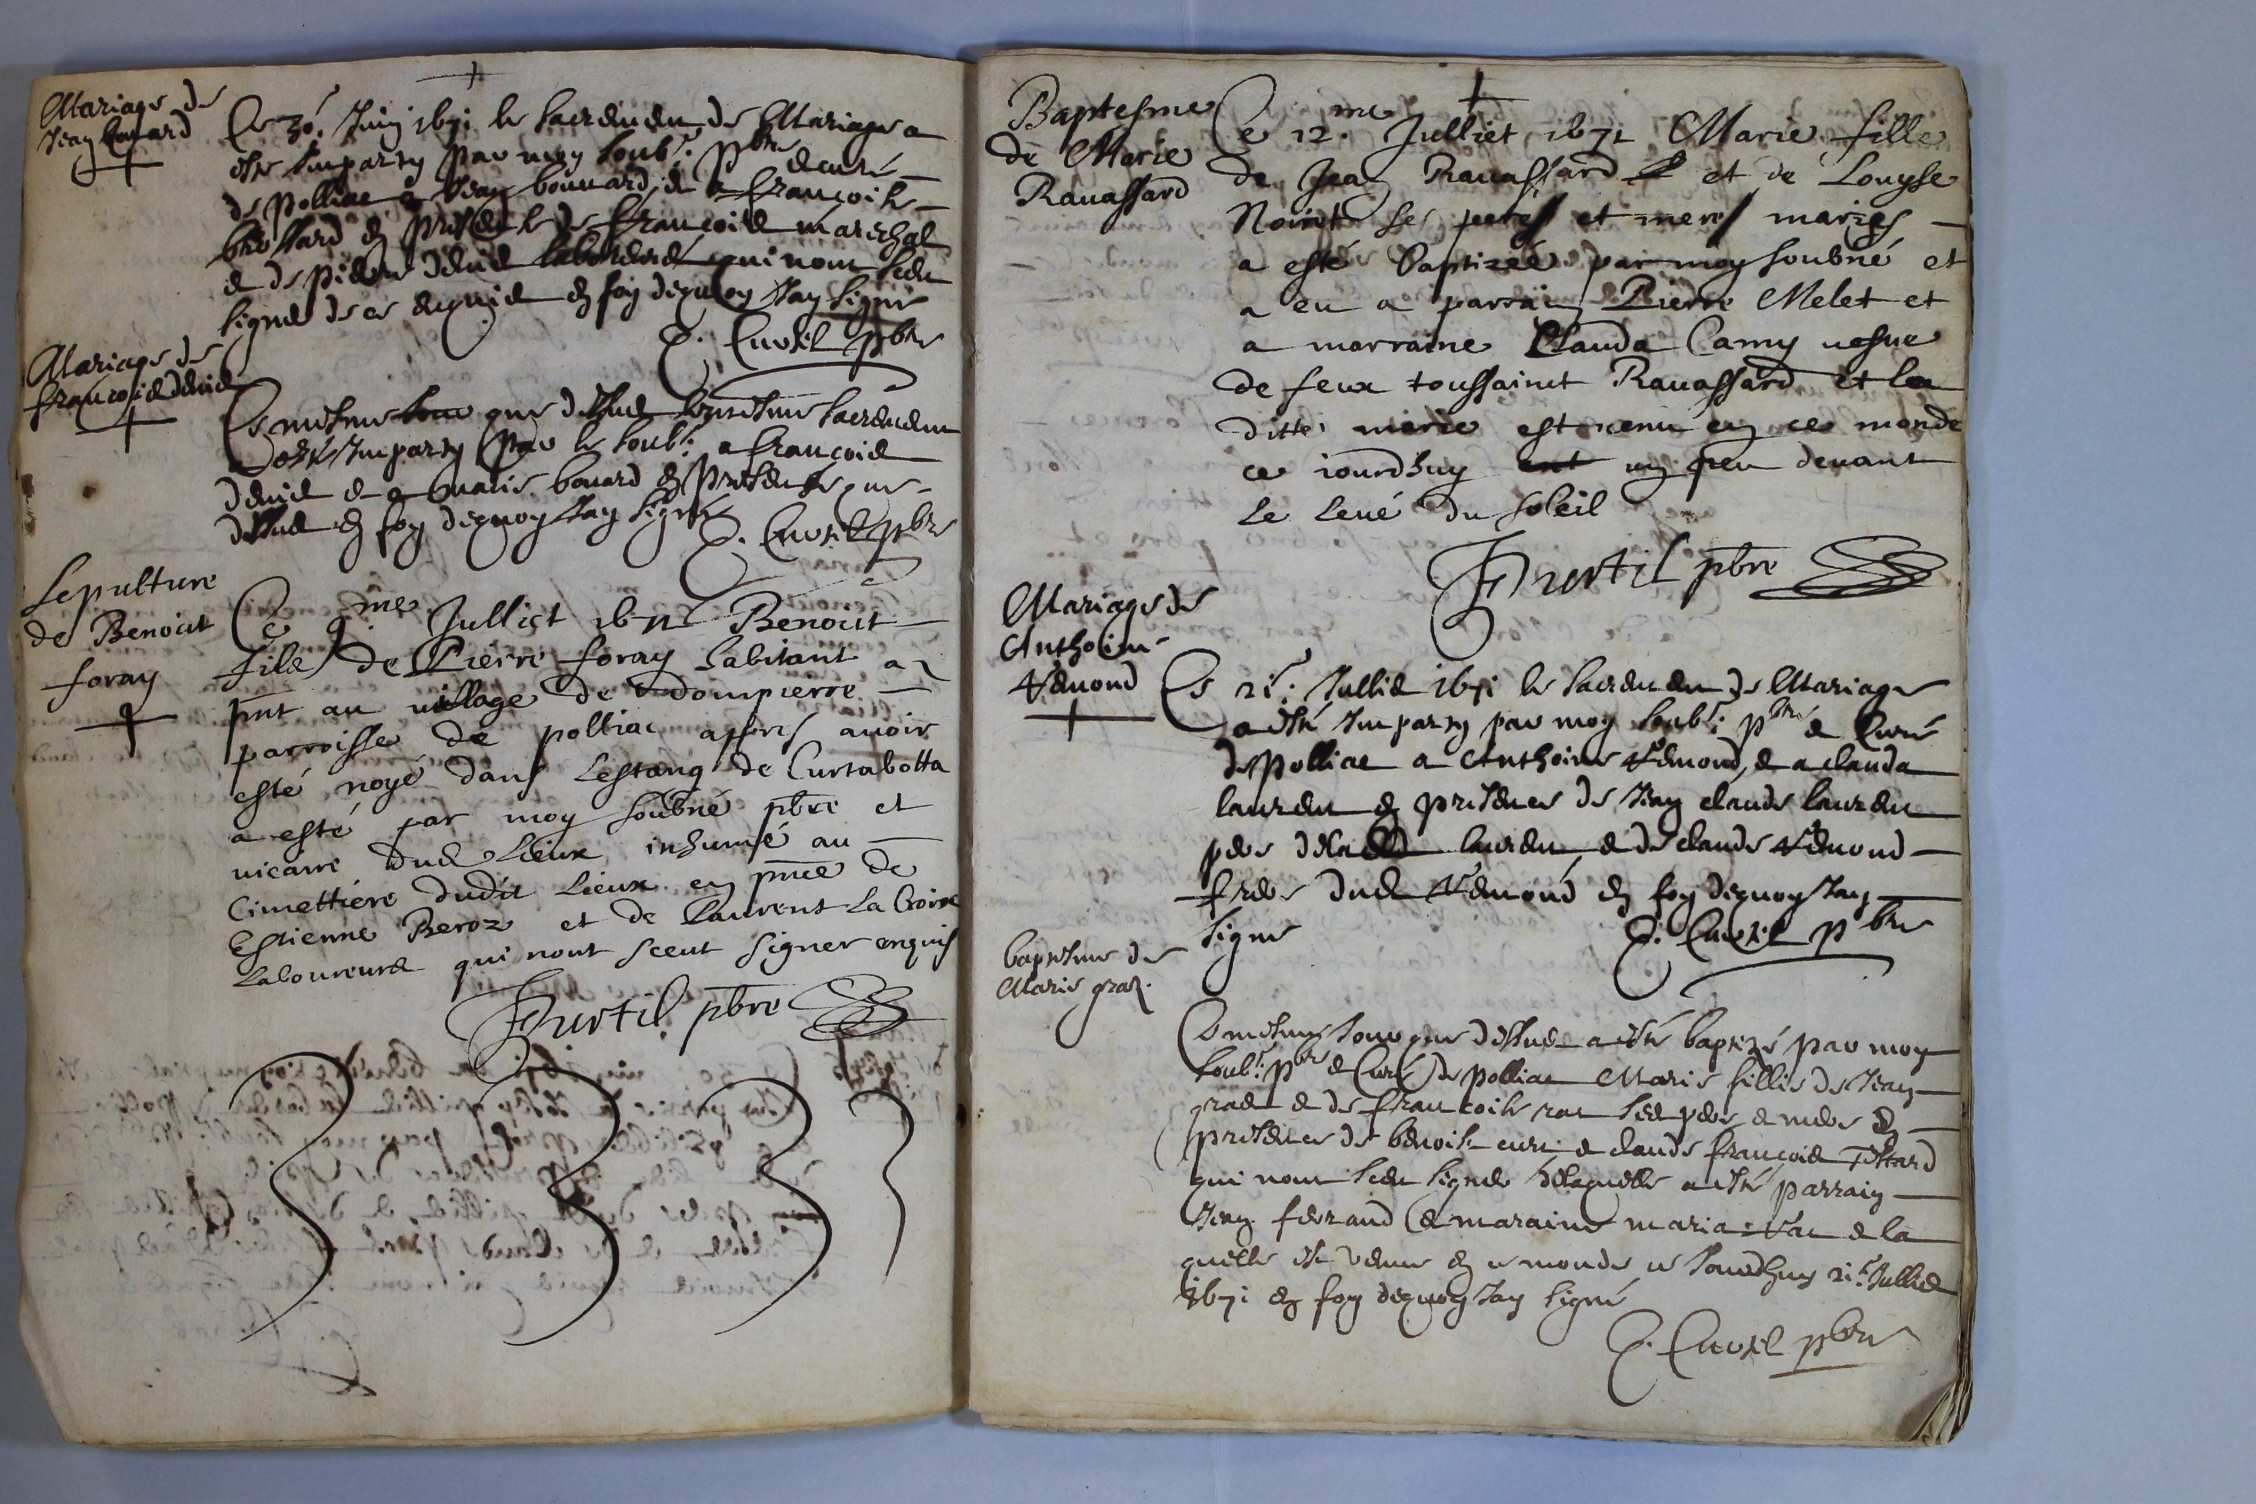 Mariage de
Jean bouard
Ce 30e. Juin 1671 le sacrement de Mariage a
esté imparty par moy soubs. pbre et curé
de polliac a Jean bouuard, et a françoise
brossard en presence de françois mareschal
et de pierre deuie laboureurs qui nont sceu
signer de ce enquis en foy dequoy Jay signe
C. Curtil pbre
Mariage de
françois deuie
Ce mesme Jour que dessus le mesme sacrement
a esté imparty par le soubs. a françois
deuie et a marie bouard en presence que
dessus en foy dequoy Jay signé
C. Curtil pbre
Sepulture
de Benoict
foray
Ce 9me Julliet 1671 Benoict
fils de Pierre foray habitant a
pnt au uillage de dompierre
parroisse de polliac apres auoir
esté noyé dans Lestang de Curtabotta
a esté par moy soubné pbre et
uicaire dud Lieux inhumé au
Cimettiere dudit Lieux en pnce de
Estienne Beroz et de Laurent La Croix
Laboureurs qui nont sceut signer enquis
Curtil pbre
Baptesme
de Marie
Rauassard
Ce 12.me Julliet 1671 Marie fille
de Jean Rauassard et de Louyse
Noirot ses peres et meres mariés
a esté baptizéé par moy soubné et
a eu a parrain Pierre Melet et
a marraine Clauda Camy uesue
de feux toussainct Rauassard et la
ditte marie est uenu en ce monde
ce iourdhuy un peu deuant
Le Leué du soleil
Curtil pbre
Mariage de
Anthoine
Vemond
Ce 21e. Jullie 1671 le sacrement de Mariage
a esté imparty par moy soubs. pbre et Curé
de Polliac a Anthoine Vemond, et a clauda
laurent en presence de Jean claude laurent
pere de lad laurent, et de claude Vemond
frere dud Vemond en foy dequoy Jay
signe
C. Curtil pbre
baptesme de
Marie gras.
Ce mesme Jour que dessus a esté baptizé par moy
soubs. pbre et Curé de polliac Marie fillie de Jean
gras et de francoise rat ses pere et mere en
presence de benoist curt et claude françois Tissard
qui nont sceu signer de laquelle a esté parrain
Jean ferrand et maraine maria rat et la
quelle est venue en ce monde ce Jourdhuy 21e. Jullie
1671 en foy dequoy Jay signé
C. Curtil pbre